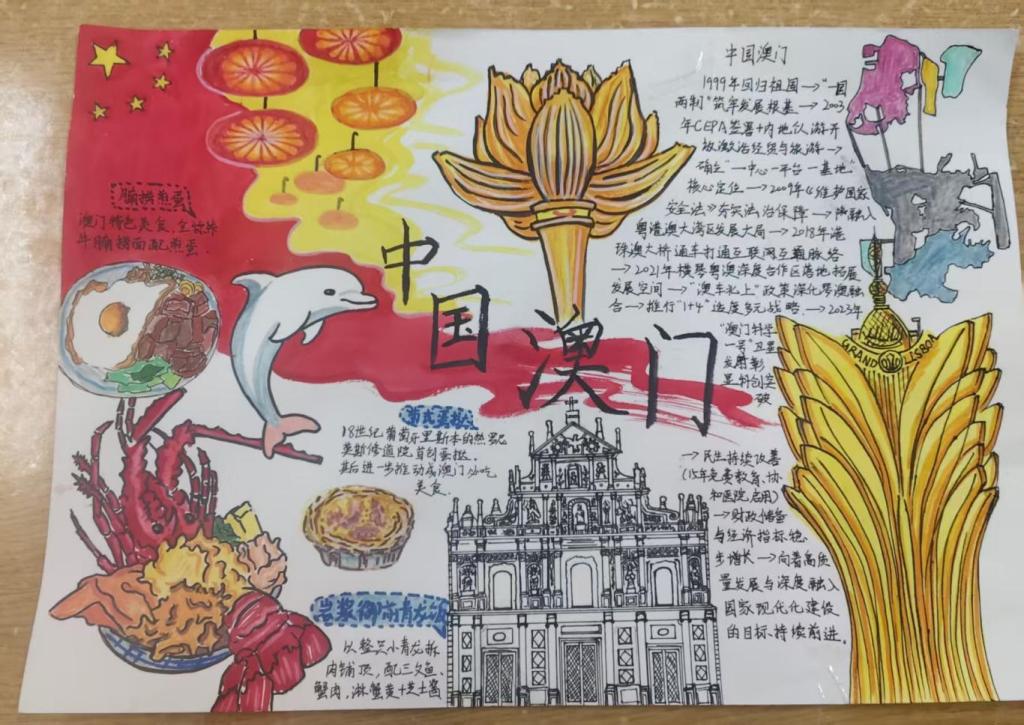 中国澳门
1999年回归祖国→"一国
两制"筑牢发展根基→2003
年CEPA签署+内地似游开
放激活经贸与旅游→
确立"一中心一平台一基地"
核心定位→2009年《维护国家
安全法》夯实法治保障→融入
粤港澳大湾区发展大局→2018年港
珠澳大桥通车打通互联网互通脉络
→2021年横琴粤澳深度合作区落地拓展
发展空间→"澳车北上"政策深化琴澳融
合→推行"1+4"适度多元战略→2023年
"澳门科学
一号"卫星
发射彰
显科创突
破
→民生持续改善
(15年免费教育、协
和医院启用)
→财政储备
与经济指标稳
步增长→向着高质
量发展与深度融入
国家现代化建设
的目标持续前进。
GRAND LISBOA
腩捞煎蛋
澳门特色美食,全
牛腩捞面配煎蛋.
中国澳门
葡式蛋挞
18世纪葡萄牙里斯本的热罗
莫斯修道院首创蛋挞.
其后进一步推动成澳门小吃
美食.
岩浆御前青龙饭
以整只小青龙拆
肉铺顶,配三文鱼、
蟹肉,淋蟹黄+芝士酱